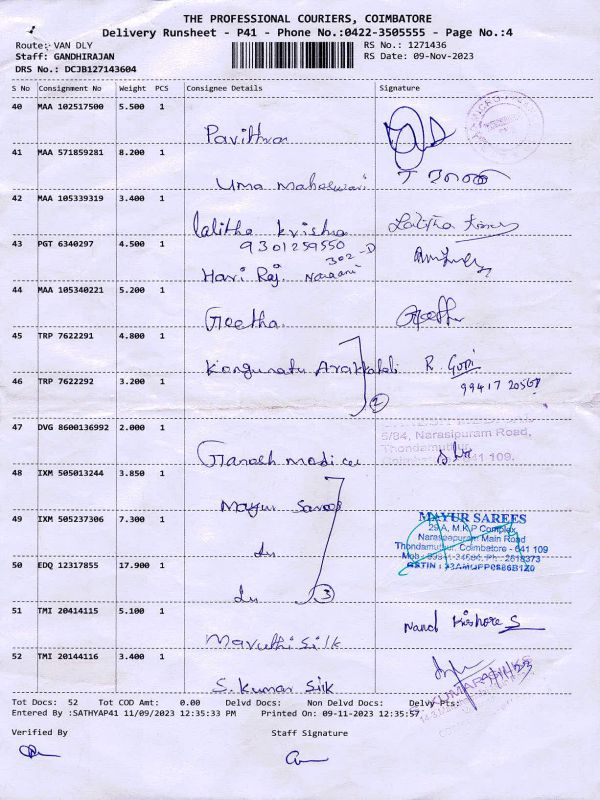 THE PROFESSIONAL COURIERS, COIMBATORE
Delivery Runsheet - P41 - Phone No.:0422-3505555 - Page No.:4
Route: VAN DLY
RS No.: 1271436
Staff: GANDHIRAJAN
RS Date: 09-Nov-2023
DRS No.: DCJB127143604
S No Consignment No Weight PCS Consignee Details Signature
40 MAA 102517500 5.500 1
Pavithra
41 MAA 571859281 8.200 1
Uma Maheswari
42 MAA 105339319 3.400 1
Lalitha Krishna Lalitha
43 PGT 6340297 4.500 1
9301259550
302-D
Hari Raj.
44 MAA 105340221 5.200 1
Geetha. Geetha
45 TRP 7622291 4.800 1
Kongunatu R. Gopi
46 TRP 7622292 3.200 1
2
47 DVG 8600136992 2.000 1
5/84, Narasipuram Road,
Thondamuthur,
Coimbatore - 641 109.
Ganesh
48 IXM 505013244 3.850 1
Mayur Sarees
49 IXM 505237306 7.300 1
MAYUR SAREES
29A, M.K.P Complex,
Naraseepuram Main Road
Thondamuthur, Coimbatore - 641 109
50 EDQ 12317855 17.900 1
3
51 TMI 20414115 5.100 1
Nand Kishore S
Maruthi Silk
52 TMI 20144116 3.400 1
S. Kumar Silk
Tot Docs: 52 Tot COD Amt: 0.00 Delvd Docs: Non Delvd Docs: Delvy Pts:
Entered By :SATHYAP41 11/09/2023 12:35:33 PM Printed On: 09-11-2023 12:35:57
Verified By Staff Signature